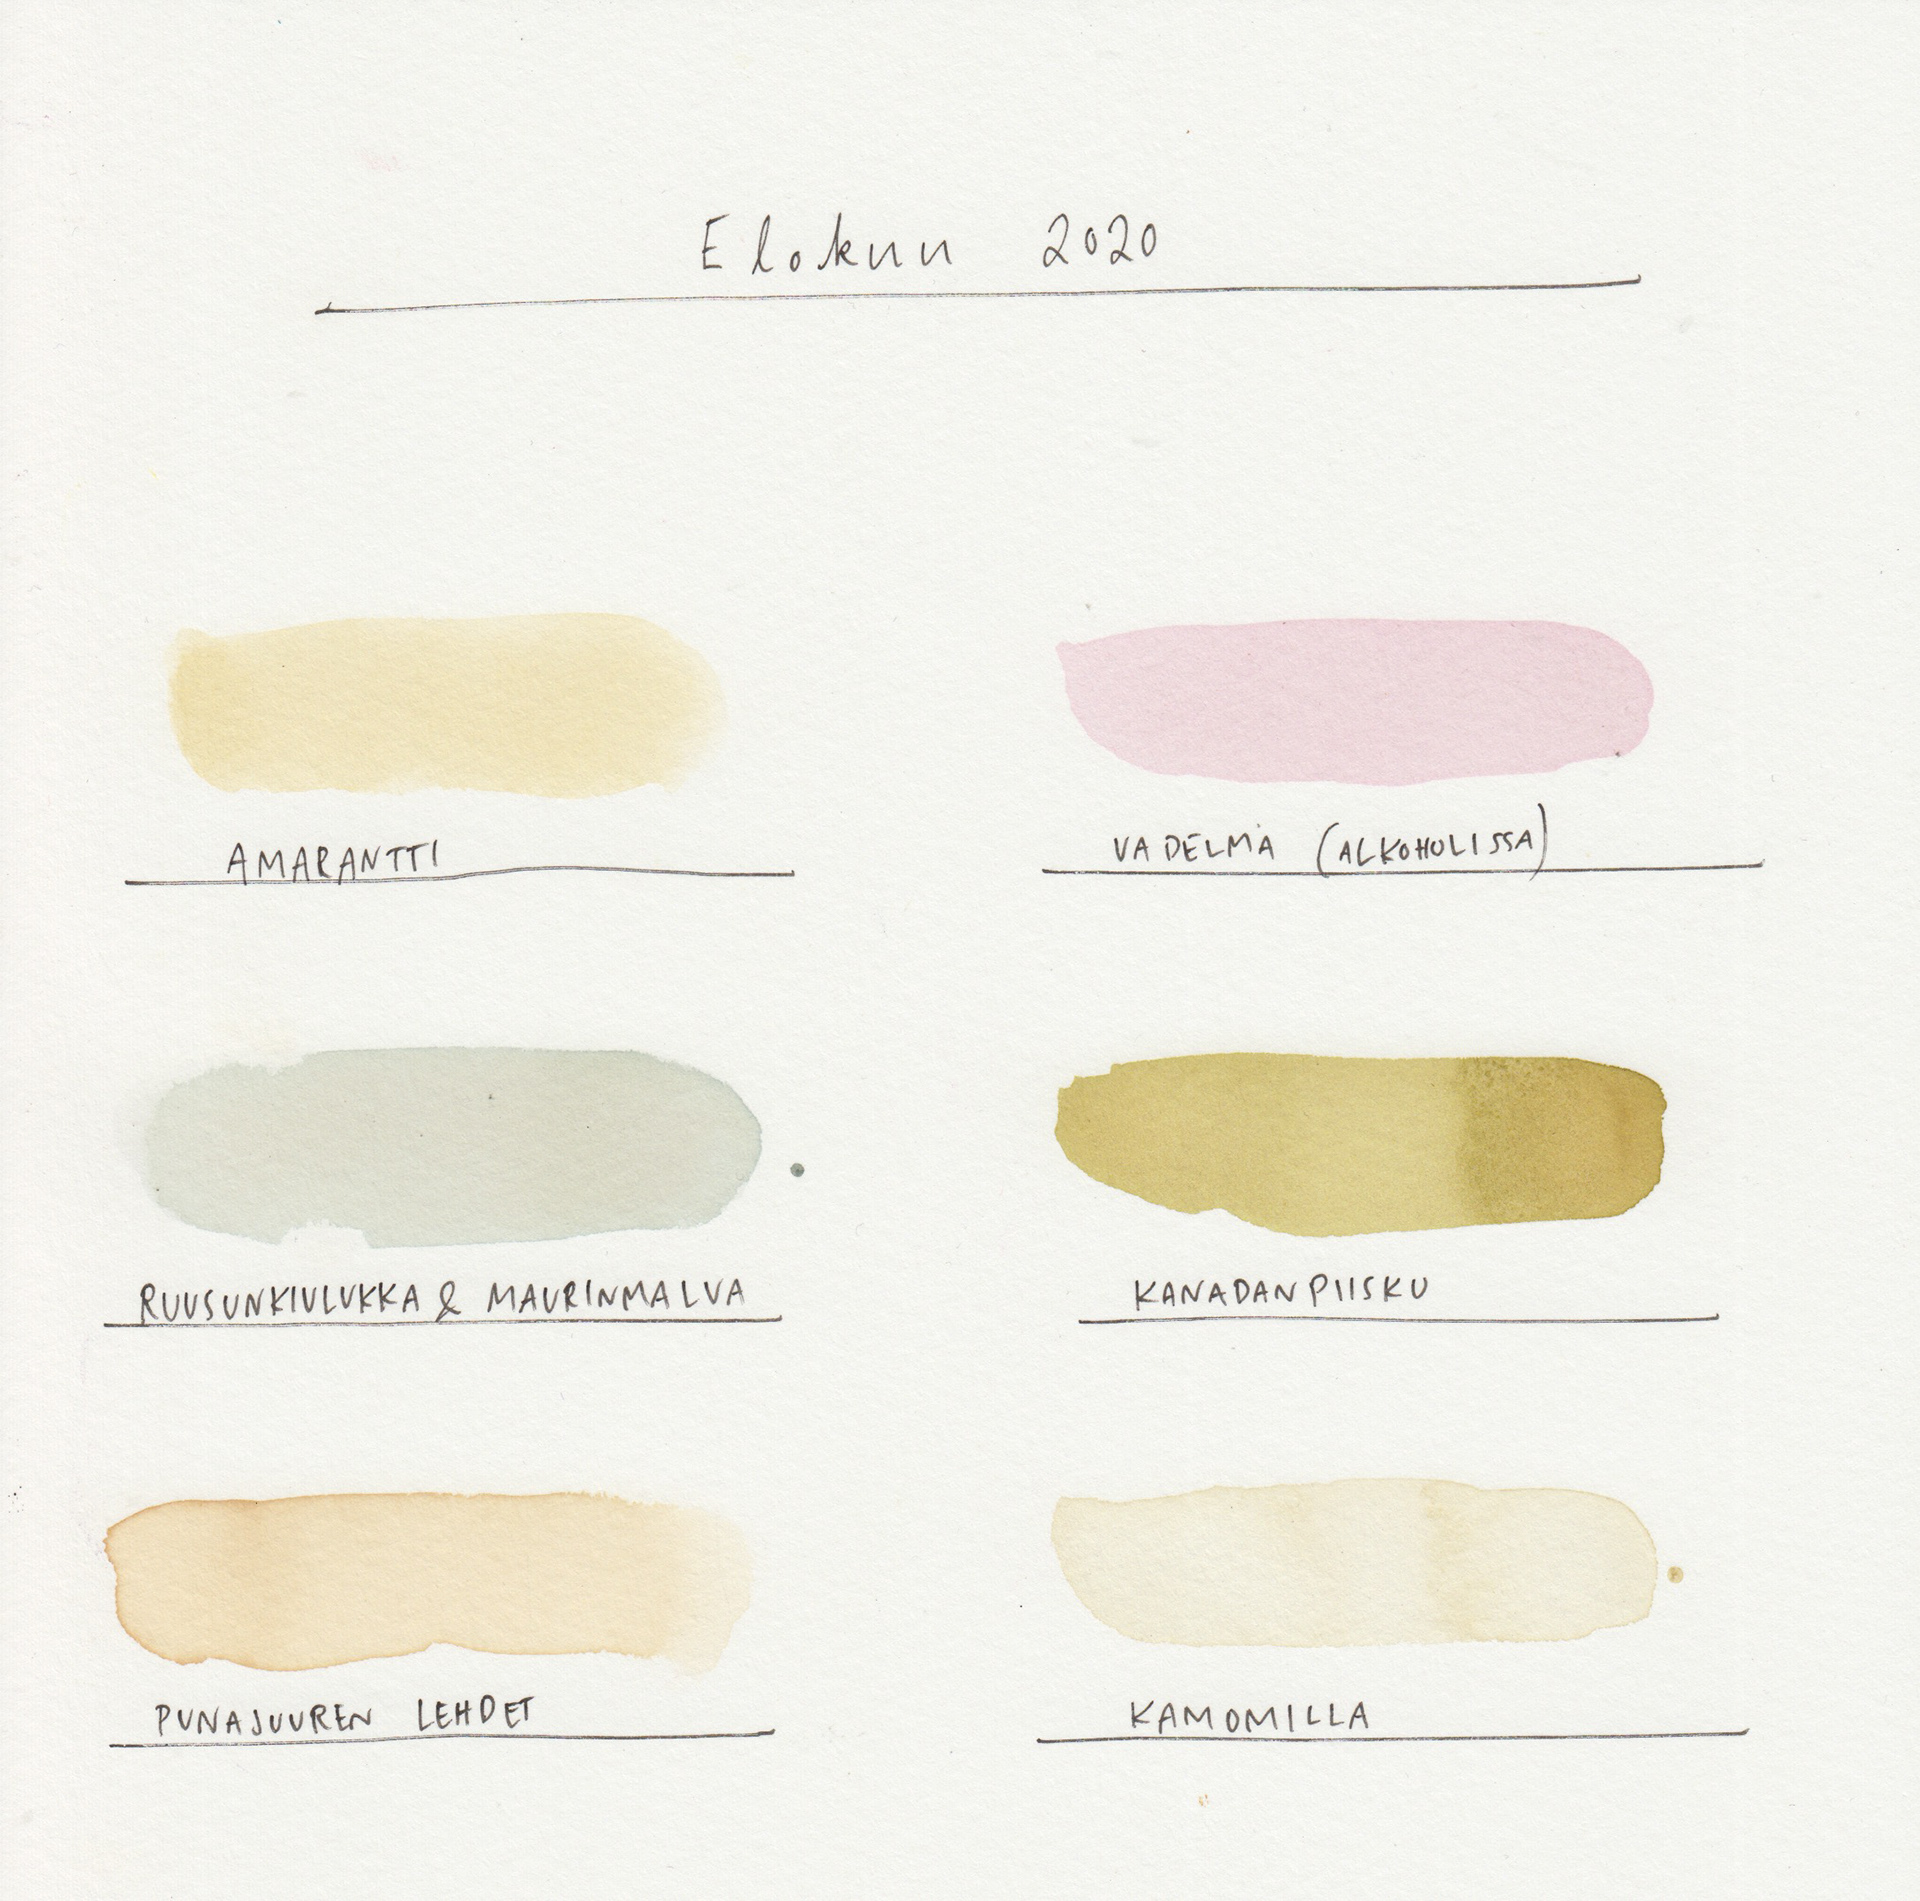 Elokuu 2020
AMARANTTI
VADELMA (ALKOHOLISSA)
RUUSUNKIULUKKA & MAURINMALVA
KANADANPIISKU
PUNAJUUREN LEHDET
KAMOMILLA